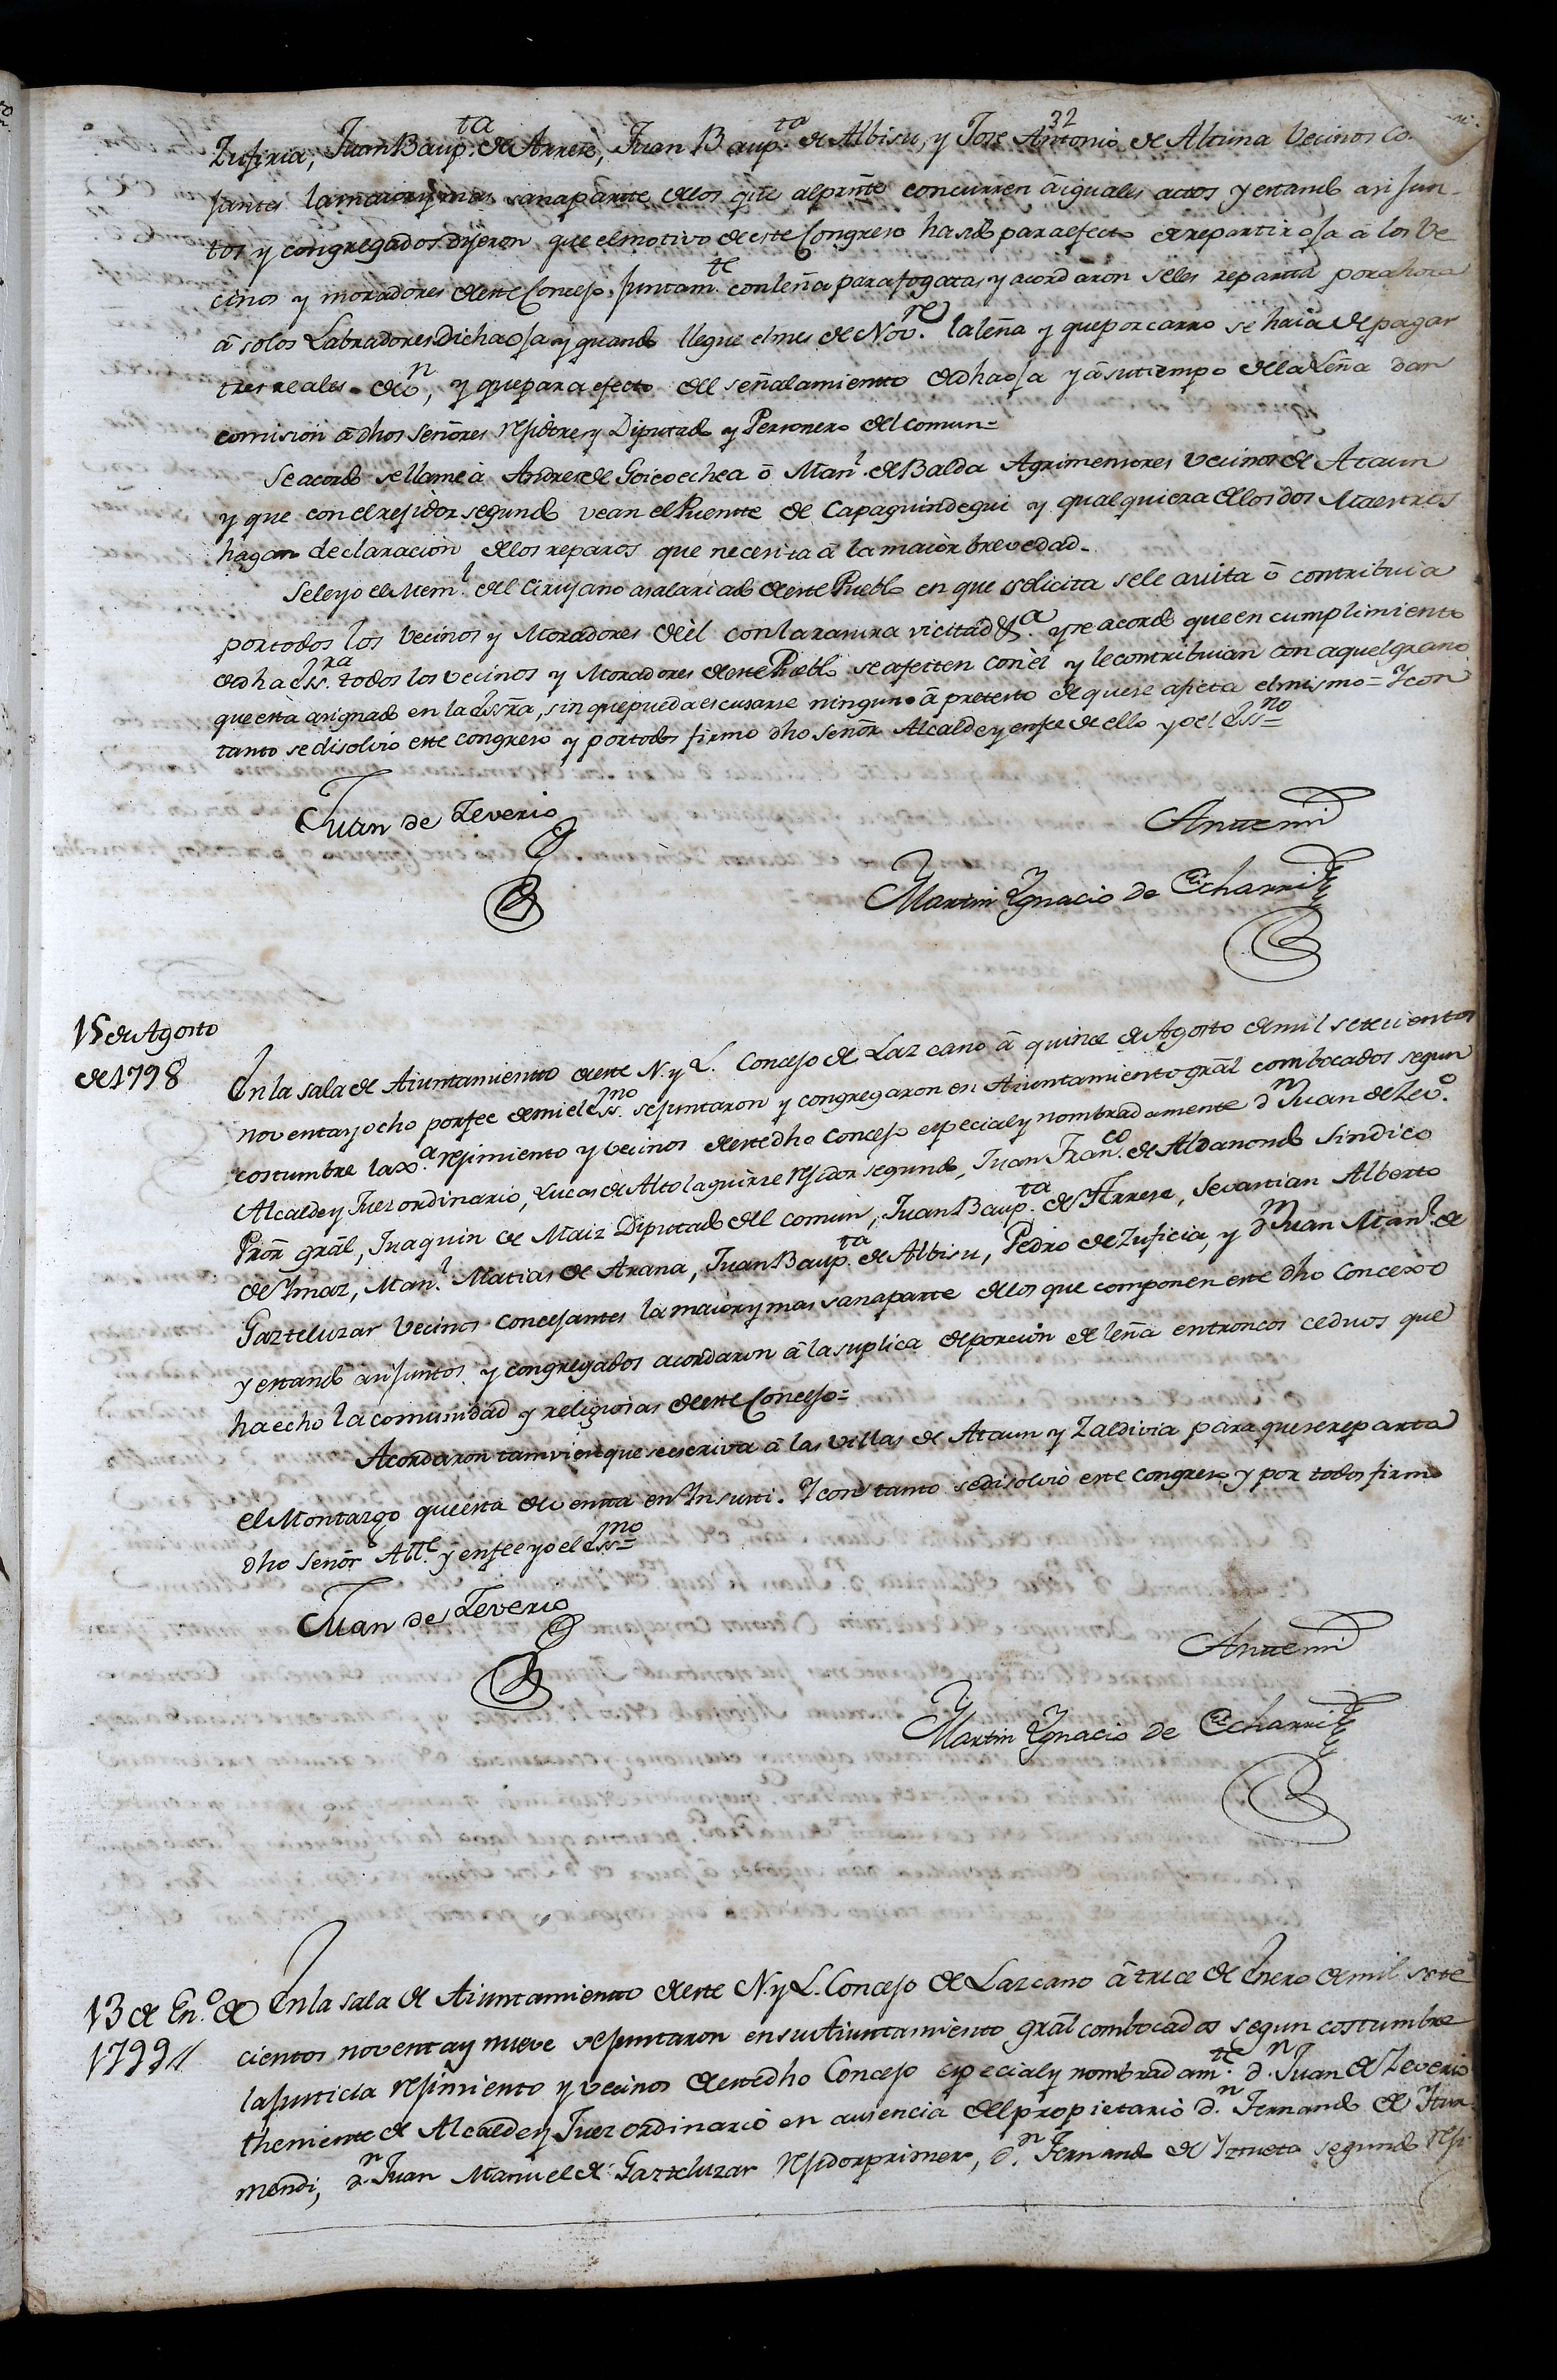 22
Zufiria, Juan Baup.ta de Arrese, Juan Baup.ta de Albisu, y Jose Antonio de Altuna Vecinos Co
jantes la maior y mas sana parte de los que al prnte concurren â iguales actos y estando asi jun-
tos y congregados dijeron que el motivo de este Congreso ha sido para efecto de repartir oja â los Ve
cinos y moradores de este Concejo, juntam.te con leña para fogatas, y acordaron se les reparta por ahora
â solos Labradores dicha oja y quando llegue el mes de Nov.re la leña y que por carro se haia de pagar
tres reales de v.n, y que para efecto del señalamiento de dha oja y â su tiempo de la Leña dan
comision â dhos Señores rejidores y Diputado y Personero del comun=
Se acordo se llame â Andres de Goicoechea ô Man.l de Balda Agrimensores vecinos de Ataun
y que con el rejidor segundo vean el Puente de Capaguindegui y qualquiera de los dos Maestros
hagan declaracion de los reparos que necesita â la maior brevedad-
Se leyo el Mem.l del Cirujano asalariado de este Pueblo en que solicita se le asista ô contribuia
por todos los Vecinos y Moradores de êl con la rasura vicitad &.a y se acordo que en cumplimiento
de dha Ess.ra todos los vecinos y Moradores de este Pueblo se afeiten con êl y le contribuian con aquel grano
que esta asignado en la Essrã, sin que pueda escusarse ninguno â pretesto de que se afeita el mismo= Y con
tanto se disolvio este congreso y por todos firmo dho Señor Alcalde y en fee de ello yo el Ess.no=
Juan de Zeverio
Ante mi
Martin Ygnacio de Echarri
15 de Agosto
de 1798
En la sala de Aiuntamiento de este N. y L. Concejo de Lazcano â quince de Agosto de mil setecientos
noventa y ocho por fee de mi el Ess.no se juntaron y congregaron en Aiuntamiento grãl combocados segun
costumbre la xa. rejimiento y vecinos de este dho Concejo especial y nombradamente d.n Juan de Zev.o
Alcalde y Juez ordinario, Lucas de Altolaguirre rejidor segundo, Juan Fran.co de Aldanondo Sindico
Prõr grãl, Juaquin de Maiz Diputado del comun, Juan Baup.ta de Arrese, Sevastian Alberto
de Ymaz, Man.l Matias de Arana, Juan Baup.ta de Albisu, Pedro de Zuficia, y d.n Juan Man.l de
Gazteluzar Vecinos Concejantes la maior y mas sana parte de los que componen este dho Concexo
y estando asi juntos y congregados acordaron â la suplica de porcion de leña en troncos ceduos que
ha echo la comunidad y religiosas de este Concejo=
Acordaron tamvien que se escriva â las villas de Ataun y Zaldivia para que se reparta
el Montazgo que esta de venta en Ynsusti. Y con tanto se disolvio este congreso y por todos firmo
dho Señor All.e y en fee yo el Ess.no=
Juan de Zeverio
Ante mi
Martin Ygnacio de Echarri
13 de En.o de
1799//
En la sala de Aiuntamiento de este N. y L. Concejo de Lazcano â trece de Enero de mil sete
cientos noventa y nueve se juntaron en su Aiuntamiento grãl combocados segun costumbre
la justicia rejimiento y vecinos de este dho Concejo especial y nombradam.te d.n Juan de Zeverio
theniente de Alcalde y Juez ordinario en ausencia del propietario d.n Fernando de Ytur
mendi, d.n Juan Manuel de Gazteluzar rejidor primero, d.n Fernando de Yzmeta segundo reji